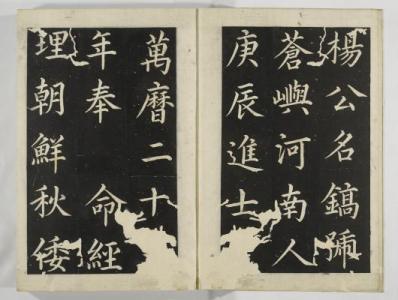 楊公名鎬號
蒼嶼河南人
庚辰進士
萬曆二十
年奉命經
理朝鮮秋倭